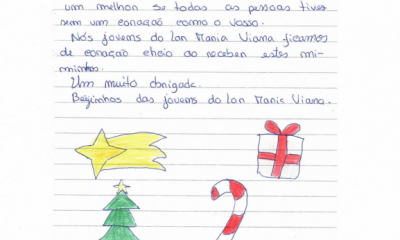 um melhor se todas as pessoas tives
sem um coração como o vosso.
Nós jovens do Lar Maria Viana ficamos
de coração cheio ao receber estes mi-
minhos.
Um muito obrigada.
Beijinhos das jovens do Lar Maria Viana.